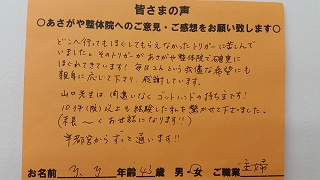 皆さまの声
○あさがや整体院へのご意見・ご感想をお願い致します○
どこへ行ってもほぐしてもらえなかったトリガーに苦しんで
いました。そのトリガーがあさがや整体院で確実に
ほぐれてきています！毎回2人という我儘な希望にも
親身に応じて下さり、感謝しています。
山口先生は、間違いなくゴッドハンドの持ち主です！
10件(院)以上も経験した私を驚かせて下さいました。
(末長〜くお世話になります!!)
宇都宮からずっと通います!!
お名前 Y.Y 年齢 43 歳 男・女 ご職業 主婦